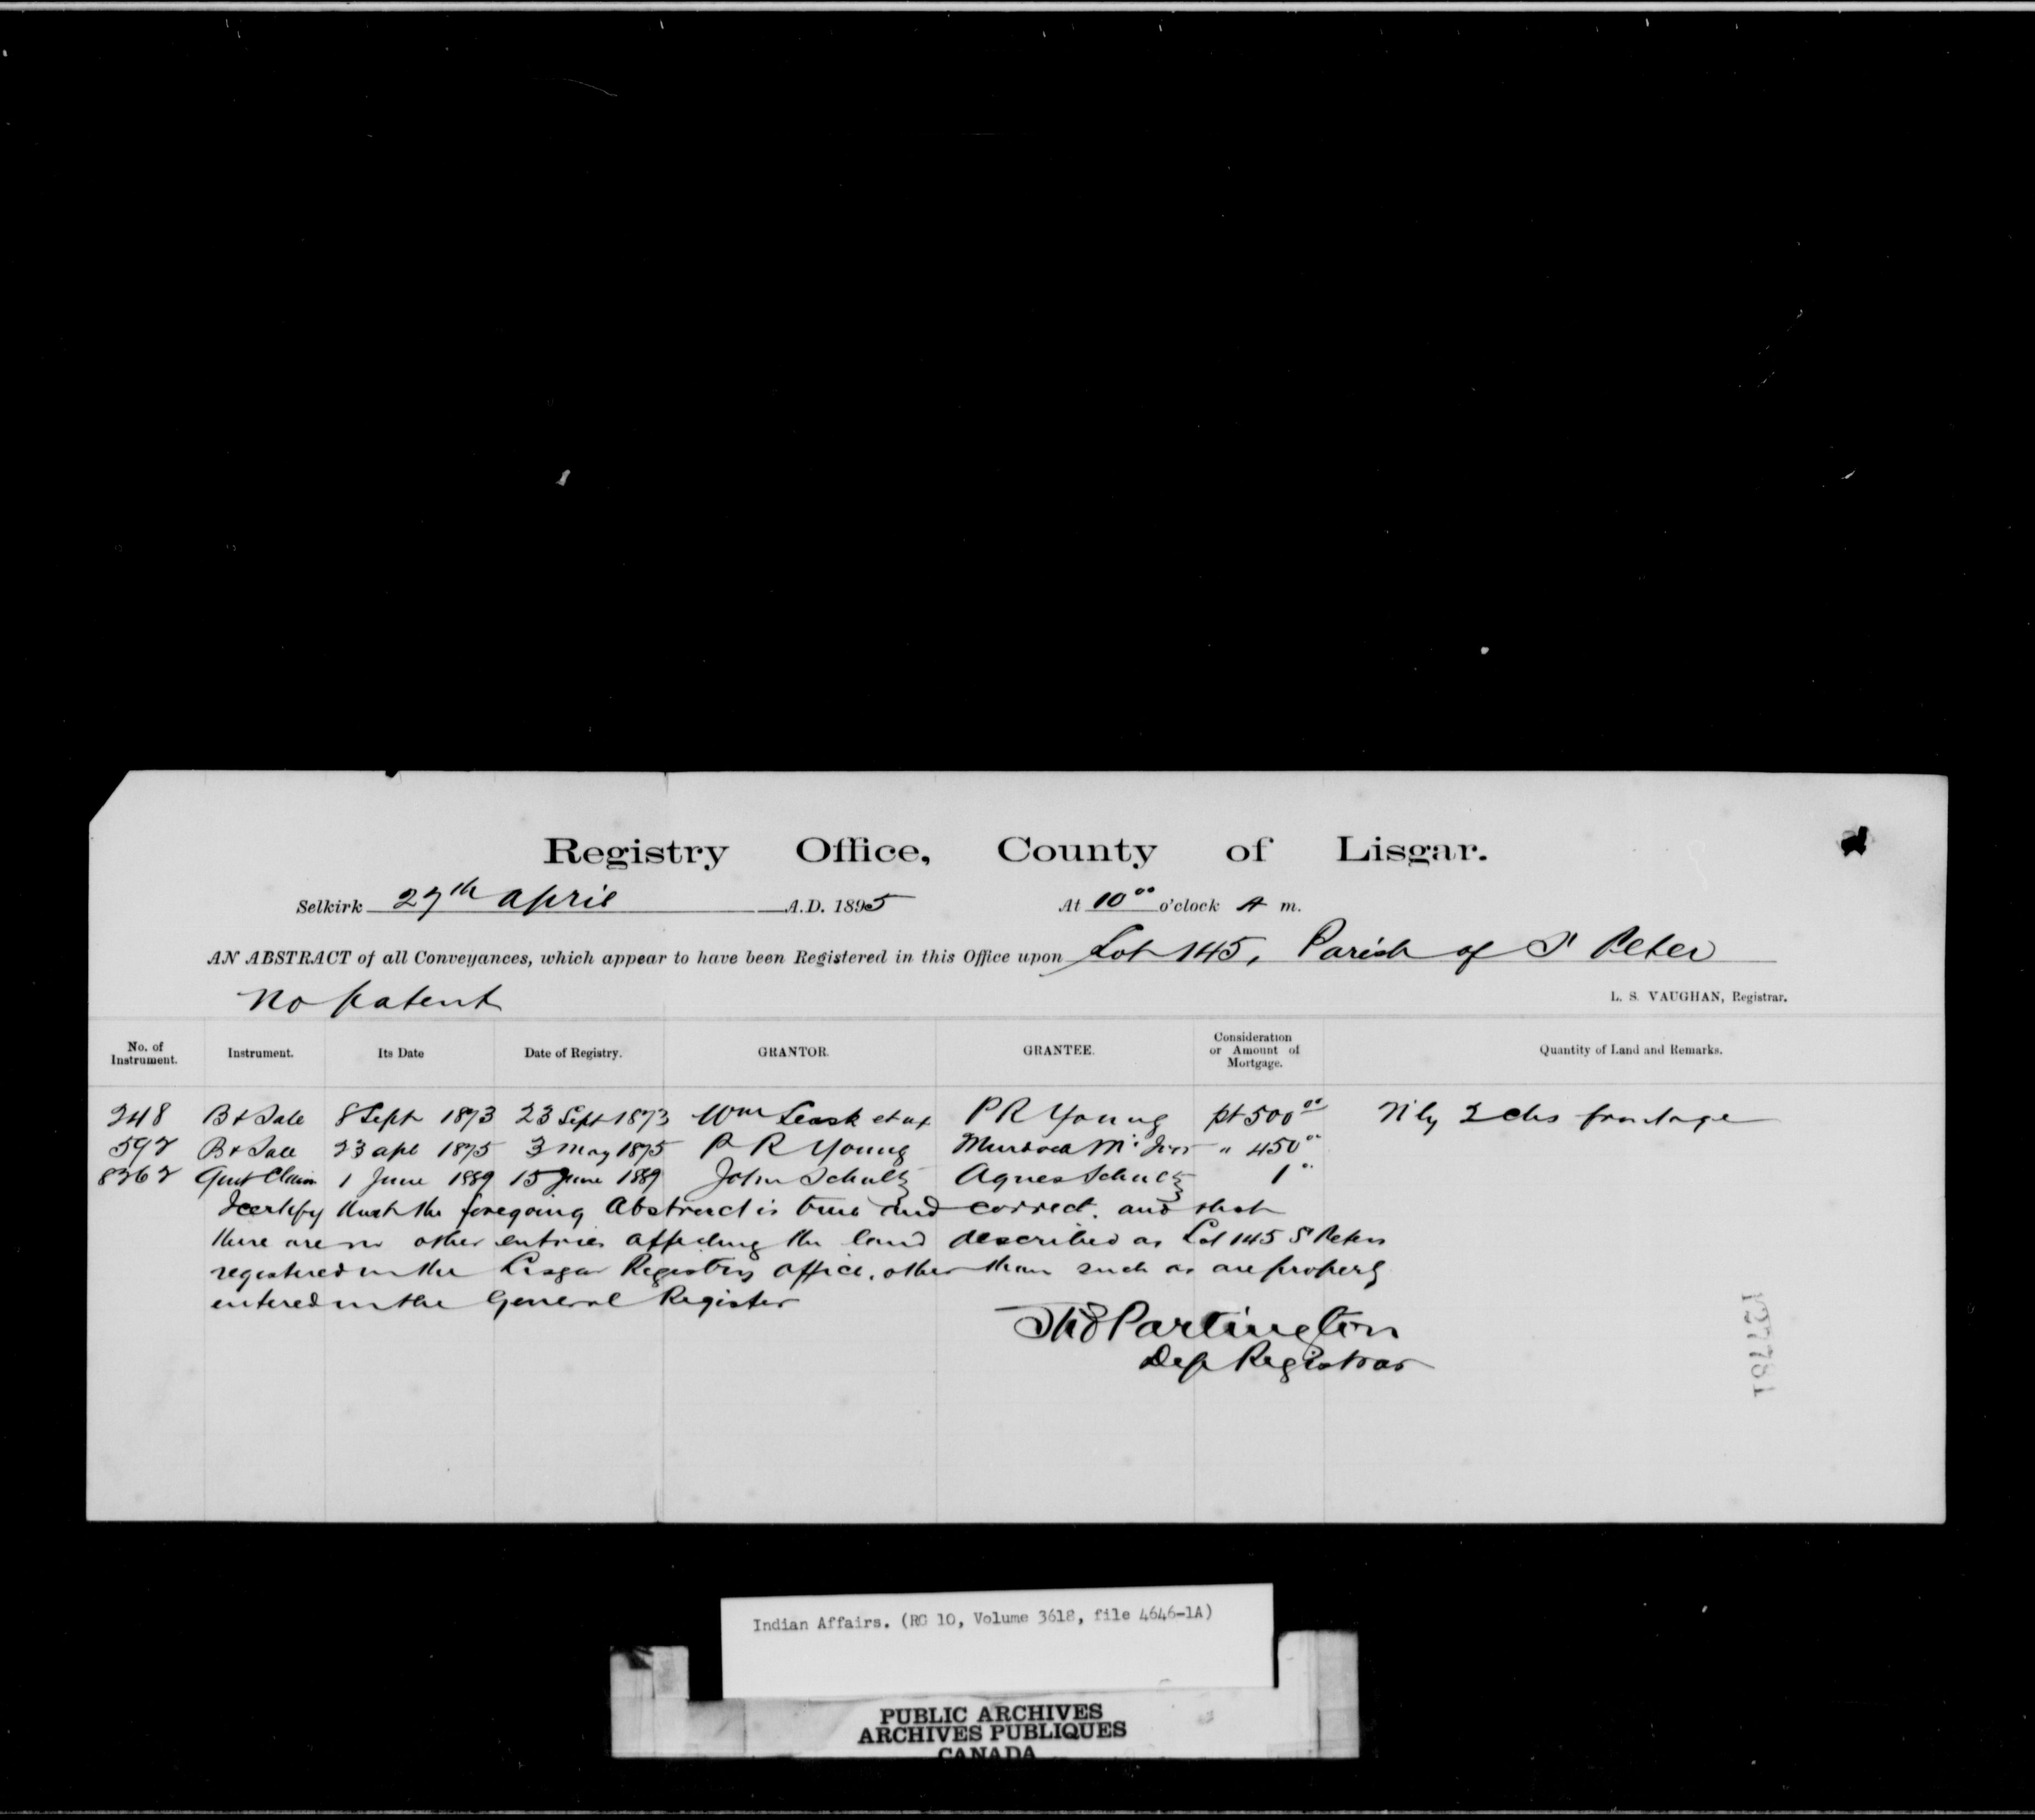 Registry Office, County of Lisgar.
Selkirk 27th April A.D. 1895 At 10 00 o'clock A m.
AN ABSTRACT of all Conveyances, which appear to have been Registered in this Office upon Lot 145, Parish of St Peter
No patent
L. S. VAUGHAN, Registrar.
No. of Instrument. Instrument. Its Date Date of Registry. GRANTOR. GRANTEE. Consideration or Amount of Mortgage. Quantity of Land and Remarks.
248 B & Sale 8 Sept 1873 23 Sept 1873 Wm Leask et ux P R Young pt 500 00 N'ly 2 chs frontage
592 B & Sale 23 apl 1875 3 May 1875 P R Young Murdoch " 450 00
8362 Quit Claim 1 June 1889 15 June 1889 John Schultz Agnes Schultz 1 00
I certify that the foregoing Abstract is true and correct. and that
there are no other entries affecting the land described as Lot 145 St Peters
registered in the Lisgar Registry office, other than such as are properly
entered in the General Register
Thos Partington
Dep Registrar
127781
Indian Affairs. (RG 10, Volume 3618, file 4646-1A)
PUBLIC ARCHIVES
ARCHIVES PUBLIQUES
CANADA